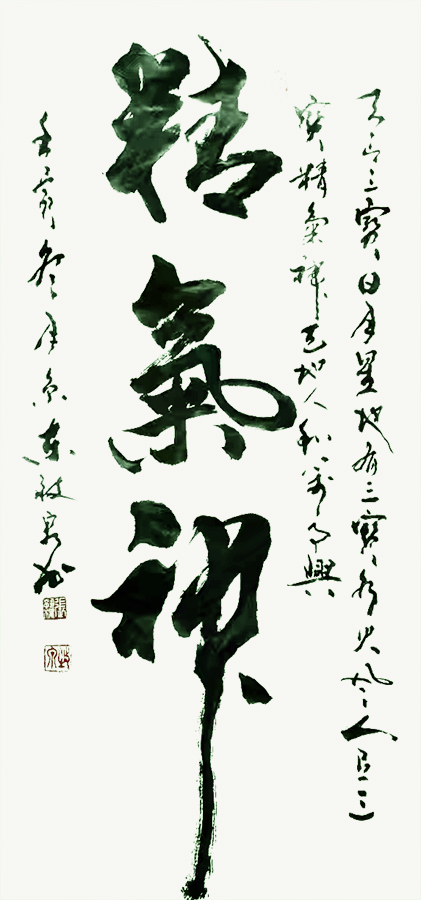 天有三寶日月星地有三寶水火風人有三
寶精氣神天地人和萬事興
精氣神
壬寅冬月京東